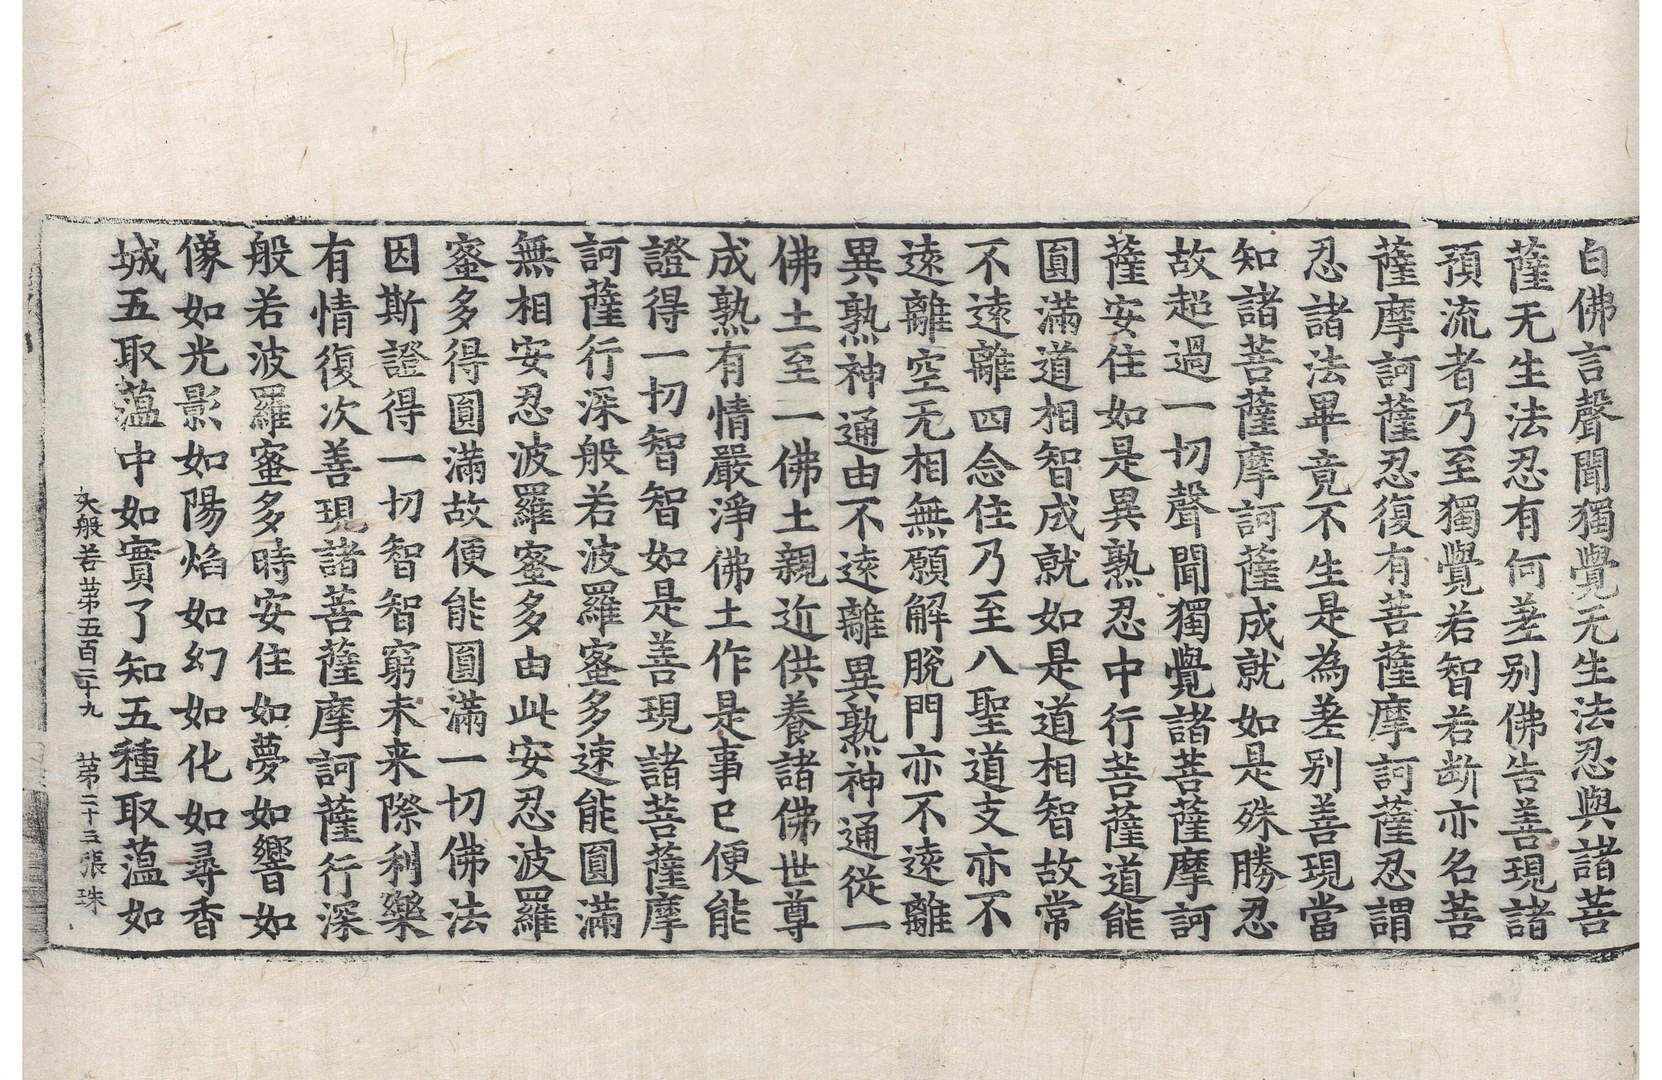 白佛言聲聞獨覺无生法忍與諸菩
薩无生法忍有何差别佛告善現諸
預流者乃至獨覺若智若断亦名菩
薩摩訶薩忍復有菩薩摩訶薩忍謂
忍諸法畢竟不生是為差别善現當
知諸菩薩摩訶薩成就如是殊勝忍
故超過一切聲聞獨覺諸菩薩摩訶
薩安住如是異熟忍中行菩薩道能
圓滿道相智成就如是道相智故常
不遠離四念住乃至八聖道支亦不
遠離空无相無願解脫門亦不遠離
異熟神通由不遠離異熟神通從一
佛土至一佛土親近供養諸佛世尊
成熟有情嚴淨佛土作是事已便能
證得一切智智如是善現諸菩薩摩
訶薩行深般若波羅蜜多速能圓滿
無相安忍波羅蜜多由此安忍波羅
蜜多得圓滿故便能圓滿一切佛法
因斯證得一切智智窮未来際利樂
有情復次善現諸菩薩摩訶薩行深
般若波羅蜜多時安住如夢如響如
像如光影如陽焰如幻如化如尋香
城五取薀中如實了知五種取薀如
大般若苐五百二十九 苐二十三張 珠